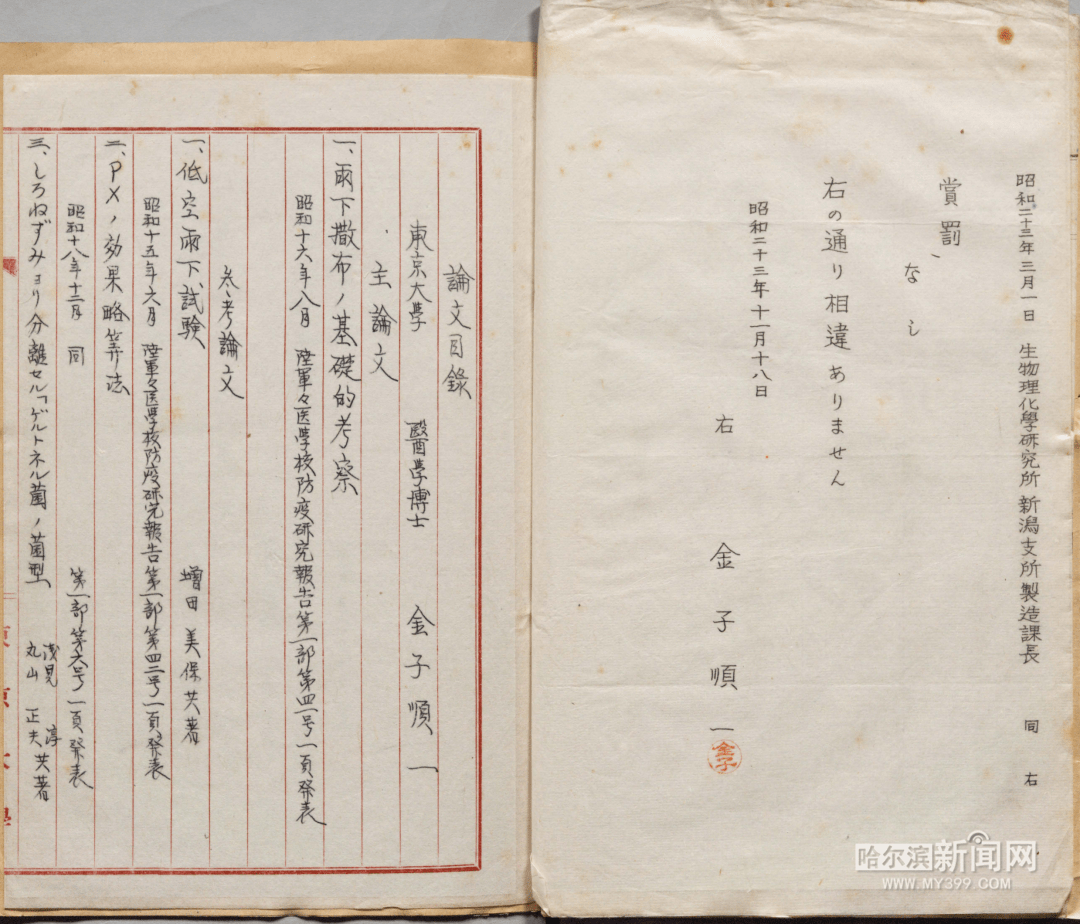 昭和二十三年三月一日 生物理化學研究所 新潟支所製造課長 同 右
賞罰、
なし
右の通り相違ありません
昭和二十三年十一月十八日
右 金子順一
金子
論文目錄
東京大学 醫学博士 金子順一
主論文
一、雨下撒布ノ基礎的考察
昭和十六年八月 陸軍々医学校防疫研究報告第一部第四一号一頁発表
参考論文
一、低空雨下試験 増田美保共著
昭和十五年六月 陸軍々医学校防疫研究報告第一部第四二号一頁発表
二、PXノ効果略算法
昭和十八年十二月 同 第一部第六号一頁発表
三、しろねずみヨリ分離セルゲルトネル菌ノ菌型 浅見 淳
丸山 正夫共著
東京大學
哈尔滨新闻网
WWW.MY399.COM